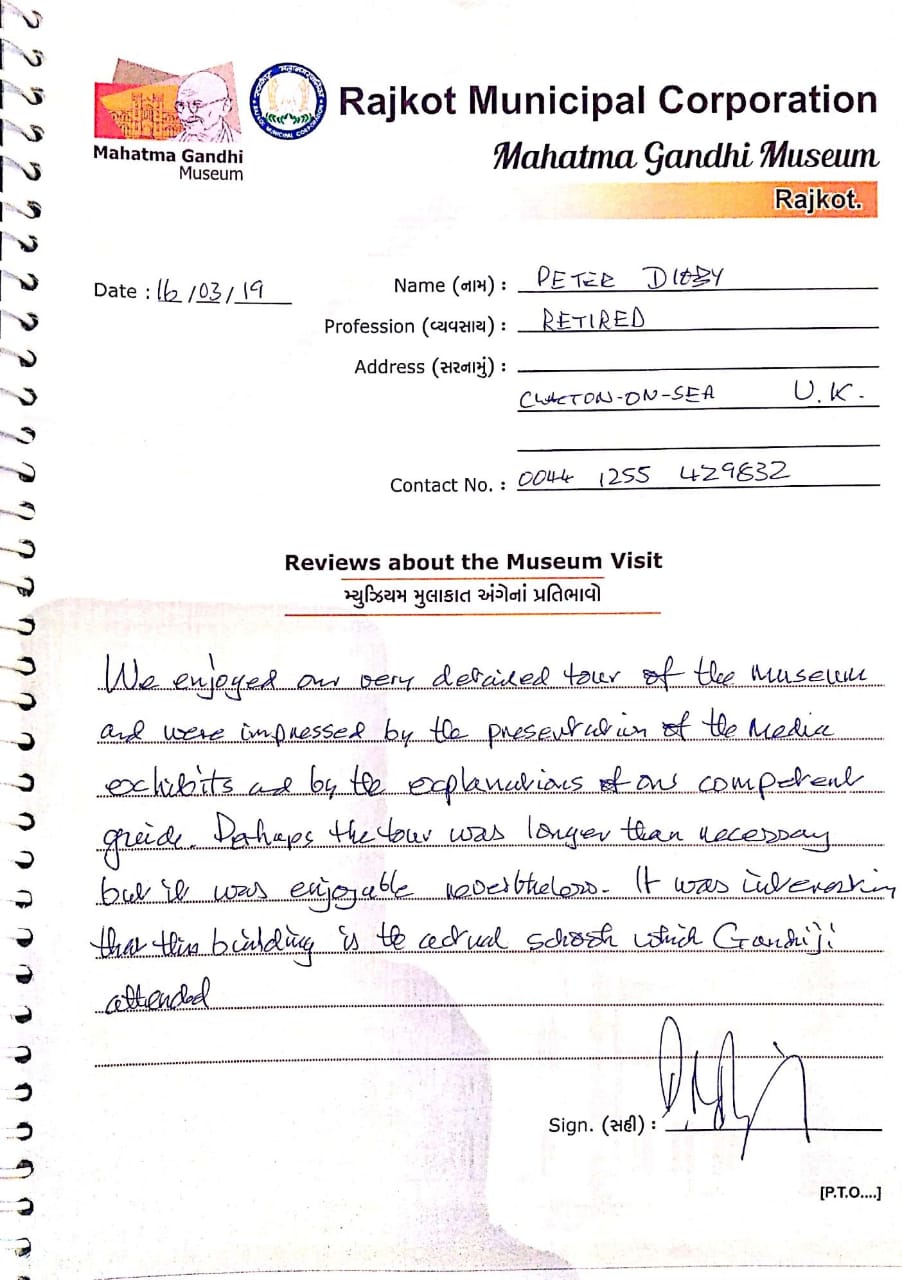 Rajkot Municipal Corporation
Mahatma Gandhi
Museum
Mahatma Gandhi Museum
Rajkot.
Date : 16/03/19
Name (નામ) : PETER DIGBY
Profession (વ્યવસાય) : RETIRED
Address (સરનામું) :
CLACTON-ON-SEA U.K.
Contact No. : 0044 1255 429832
Reviews about the Museum Visit
મ્યુઝિયમ મુલાકાત અંગેનાં પ્રતિભાવો
We enjoyed our very detailed tour of the Museum
and were impressed by the presentation of the Media
exhibits and by the explanations of our competent
guide. Perhaps the tour was longer than necessary
but it was enjoyable nevertheless. It was interesting
that this building is the actual school which Gandhiji
attended
Sign. (સહી) :
[P.T.O....]